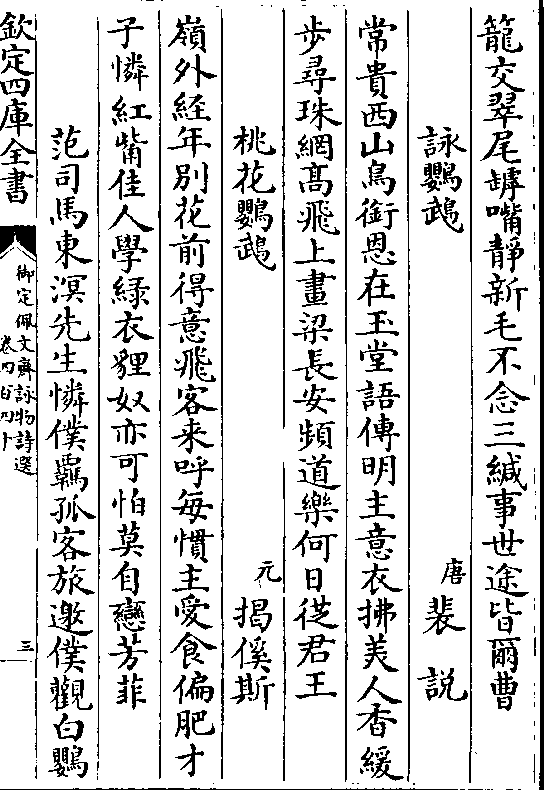 籠交翠尾罅嘴靜新毛不念三緘事世途皆爾曹
詠鸚鵡　唐　裴　說
常貴西山鳥銜恩在玉堂語傳明主意衣拂美人香緩
步尋珠網髙飛上畫梁長安頻道樂何日從君王
桃花鸚鵡　元　揭傒斯
嶺外經年别花前得意飛客来呼每慣主愛食偏肥才
子憐紅觜佳人學緑衣貍奴亦可怕莫自戀芳菲
范司馬東溟先生憐僕羈孤客旅邀僕觀白鸚
欽定四庫全書
御定佩文齋詠物詩選
卷四百四十
三